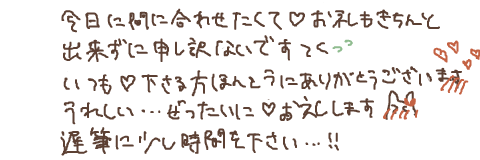 今日に間に合わせたくて♡お礼もきちんと
出来ずに申し訳ないですってっっ
いつも♡下さる方ほんとうにありがとうございます
うれしい…ぜったいに♡お返しします
遅筆に少し時間を下さい…!!